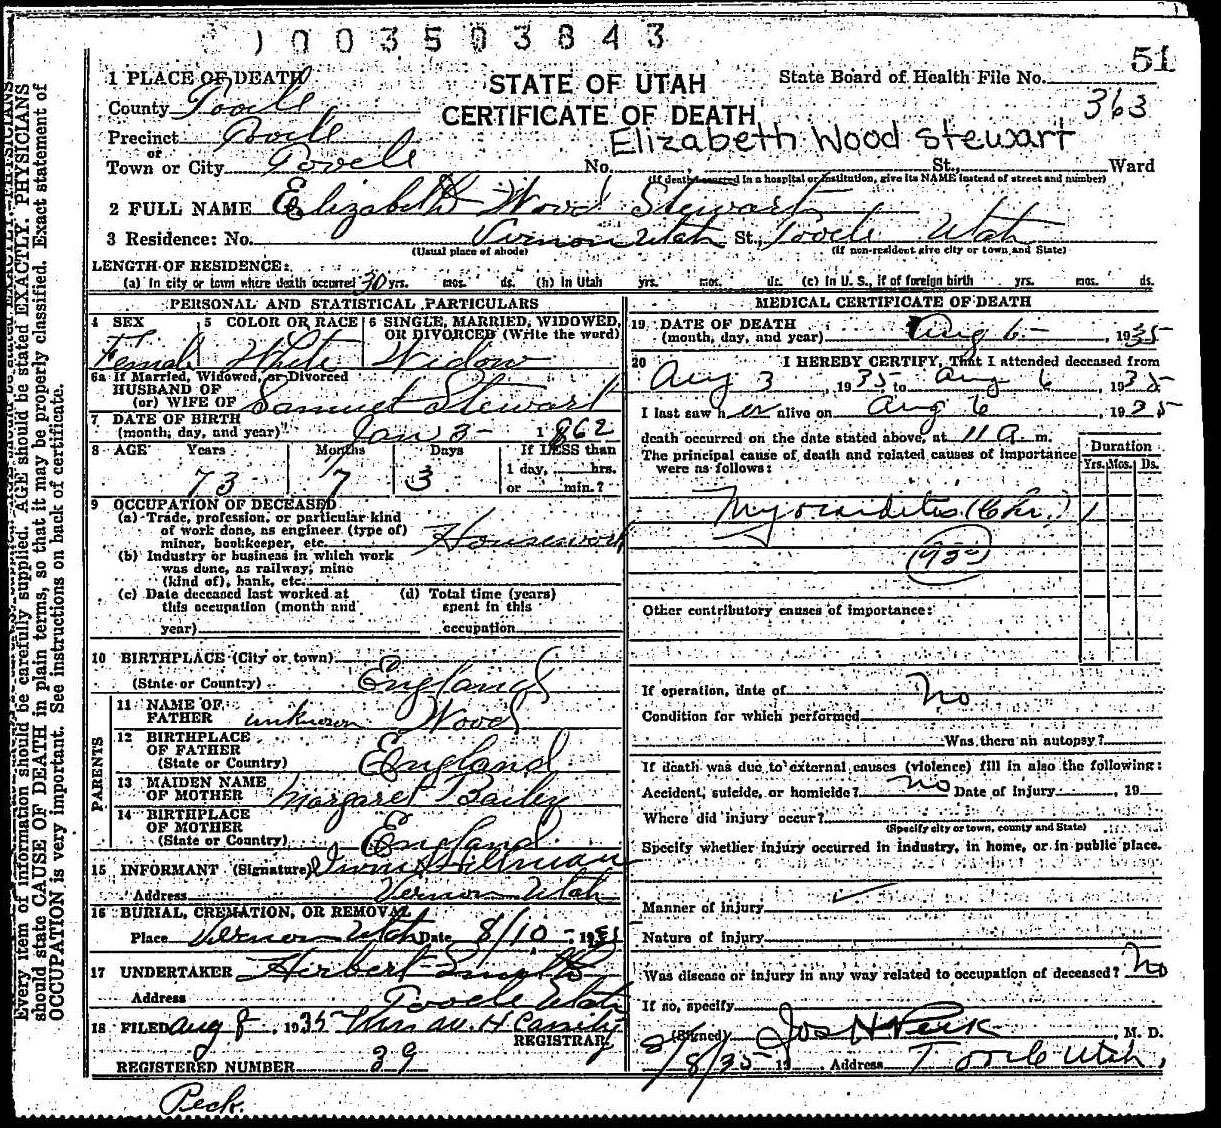 1003503843
51
1 PLACE OF DEATH
STATE OF UTAH
State Board of Health File No.
County Tooele
CERTIFICATE OF DEATH
363
Precinct Tooele
Elizabeth Wood Stewart
or
Town or City Tooele No. St., Ward
(If death occurred in a hospital or institution, give its NAME instead of street and number)
2 FULL NAME Elizabeth Wood Stewart
3 Residence: No. Vernon Utah St., Tooele Utah
(Usual place of abode) (If non-resident give city or town and State)
LENGTH OF RESIDENCE:
(a) In city or town where death occurred 30 yrs. mos. ds. (b) In Utah yrs. mos. ds. (c) in U. S., if of foreign birth yrs. mos. ds.
PERSONAL AND STATISTICAL PARTICULARS
4 SEX 5 COLOR OR RACE 6 SINGLE, MARRIED, WIDOWED, OR DIVORCED (Write the word)
Female White Widow
6a If Married, Widowed, or Divorced
HUSBAND OF
(or) WIFE OF Samuel Stewart
7 DATE OF BIRTH
(month, day, and year) Jan 3 - 1862
8 AGE Years Months Days If LESS than
73 7 3 1 day, hrs.
or min.?
9 OCCUPATION OF DECEASED
(a) Trade, profession, or particular kind
of work done, as engineer (type of)
miner, bookkeeper, etc. Housework
(b) Industry or business in which work
was done, as railway, mine
(kind of), bank, etc.
(c) Date deceased last worked at
this occupation (month and
year)
(d) Total time (years)
spent in this
occupation
10 BIRTHPLACE (City or town)
(State or Country) England
PARENTS
11 NAME OF
FATHER unknown Wood
12 BIRTHPLACE
OF FATHER
(State or Country) England
13 MAIDEN NAME
OF MOTHER Margaret Bailey
14 BIRTHPLACE
OF MOTHER
(State or Country) England
15 INFORMANT (Signature)
Address Vernon Utah
16 BURIAL, CREMATION, OR REMOVAL
Place Vernon Utah Date 8/10 - 1935
17 UNDERTAKER Herbert
Address Tooele Utah
18 FILED Aug 8, 1935
REGISTRAR
REGISTERED NUMBER 39
MEDICAL CERTIFICATE OF DEATH
19 DATE OF DEATH
(month, day, and year) Aug 6 - , 1935
20 I HEREBY CERTIFY, That I attended deceased from
Aug 3, 1935 to Aug 6, 1935
I last saw her alive on Aug 6, 1935
death occurred on the date stated above, at 11 a. m.
The principal cause of death and related causes of importance
were as follows:
Duration
Yrs. Mos. Ds.
Myocarditis (Chr.) 1
Other contributory causes of importance:
If operation, date of no
Condition for which performed
Was there an autopsy?
If death was due to external causes (violence) fill in also the following:
Accident, suicide, or homicide? no Date of injury , 19
Where did injury occur?
(Specify city or town, county and State)
Specify whether injury occurred in industry, in home, or in public place.
Manner of injury
Nature of injury
Was disease or injury in any way related to occupation of deceased? no
If no, specify
(Signed) Jos H Peck, M. D.
8/8/35 19 , Address Tooele Utah,
Peck.
Every item of information should be carefully supplied. AGE should be stated EXACTLY. PHYSICIANS
should state CAUSE OF DEATH in plain terms, so that it may be properly classified. Exact statement of
OCCUPATION is very important. See instructions on back of certificate.